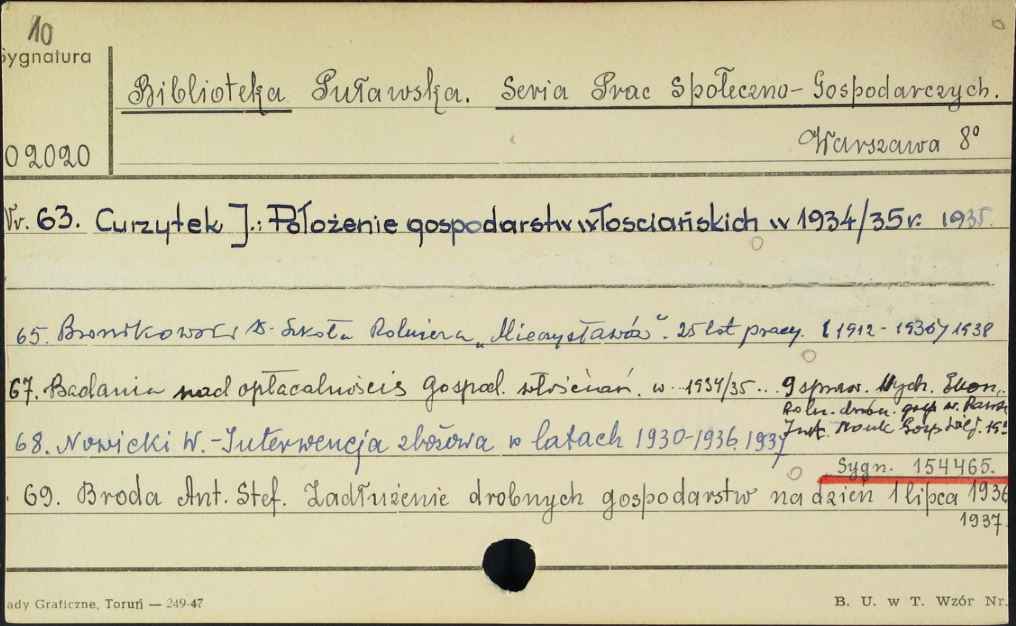 10
Sygnatura
Biblioteka Puławska. Seria Prac Społeczno-Gospodarczych.
Warszawa 8°
02020
Nr. 63. Curzytek J.: Położenie gospodarstw włosciańskich w 1934/35 r. 1935
65. Bronikowski S. Szkoła Rolnicza „Mieczysławów". 25 lat pracy. (1912-1936) 1938
67. Badania nad opłacalnościš Gospod. włościań. w 1934/35.. 9 spraw. Wydz. Ekon.
Roln. drobn. gosp. w.
Inst. Nauk Gosp
68. Nowicki W. - Interwencja zbożowa w latach 1930-1936. 1937
Sygn. 154465.
69. Broda Ant. Stef. Zadłużenie drobnych gospodarstw na dzień 1 lipca 1936
1937.
ady Graficzne, Toruń — 249-47
B. U. w T. Wzór Nr.